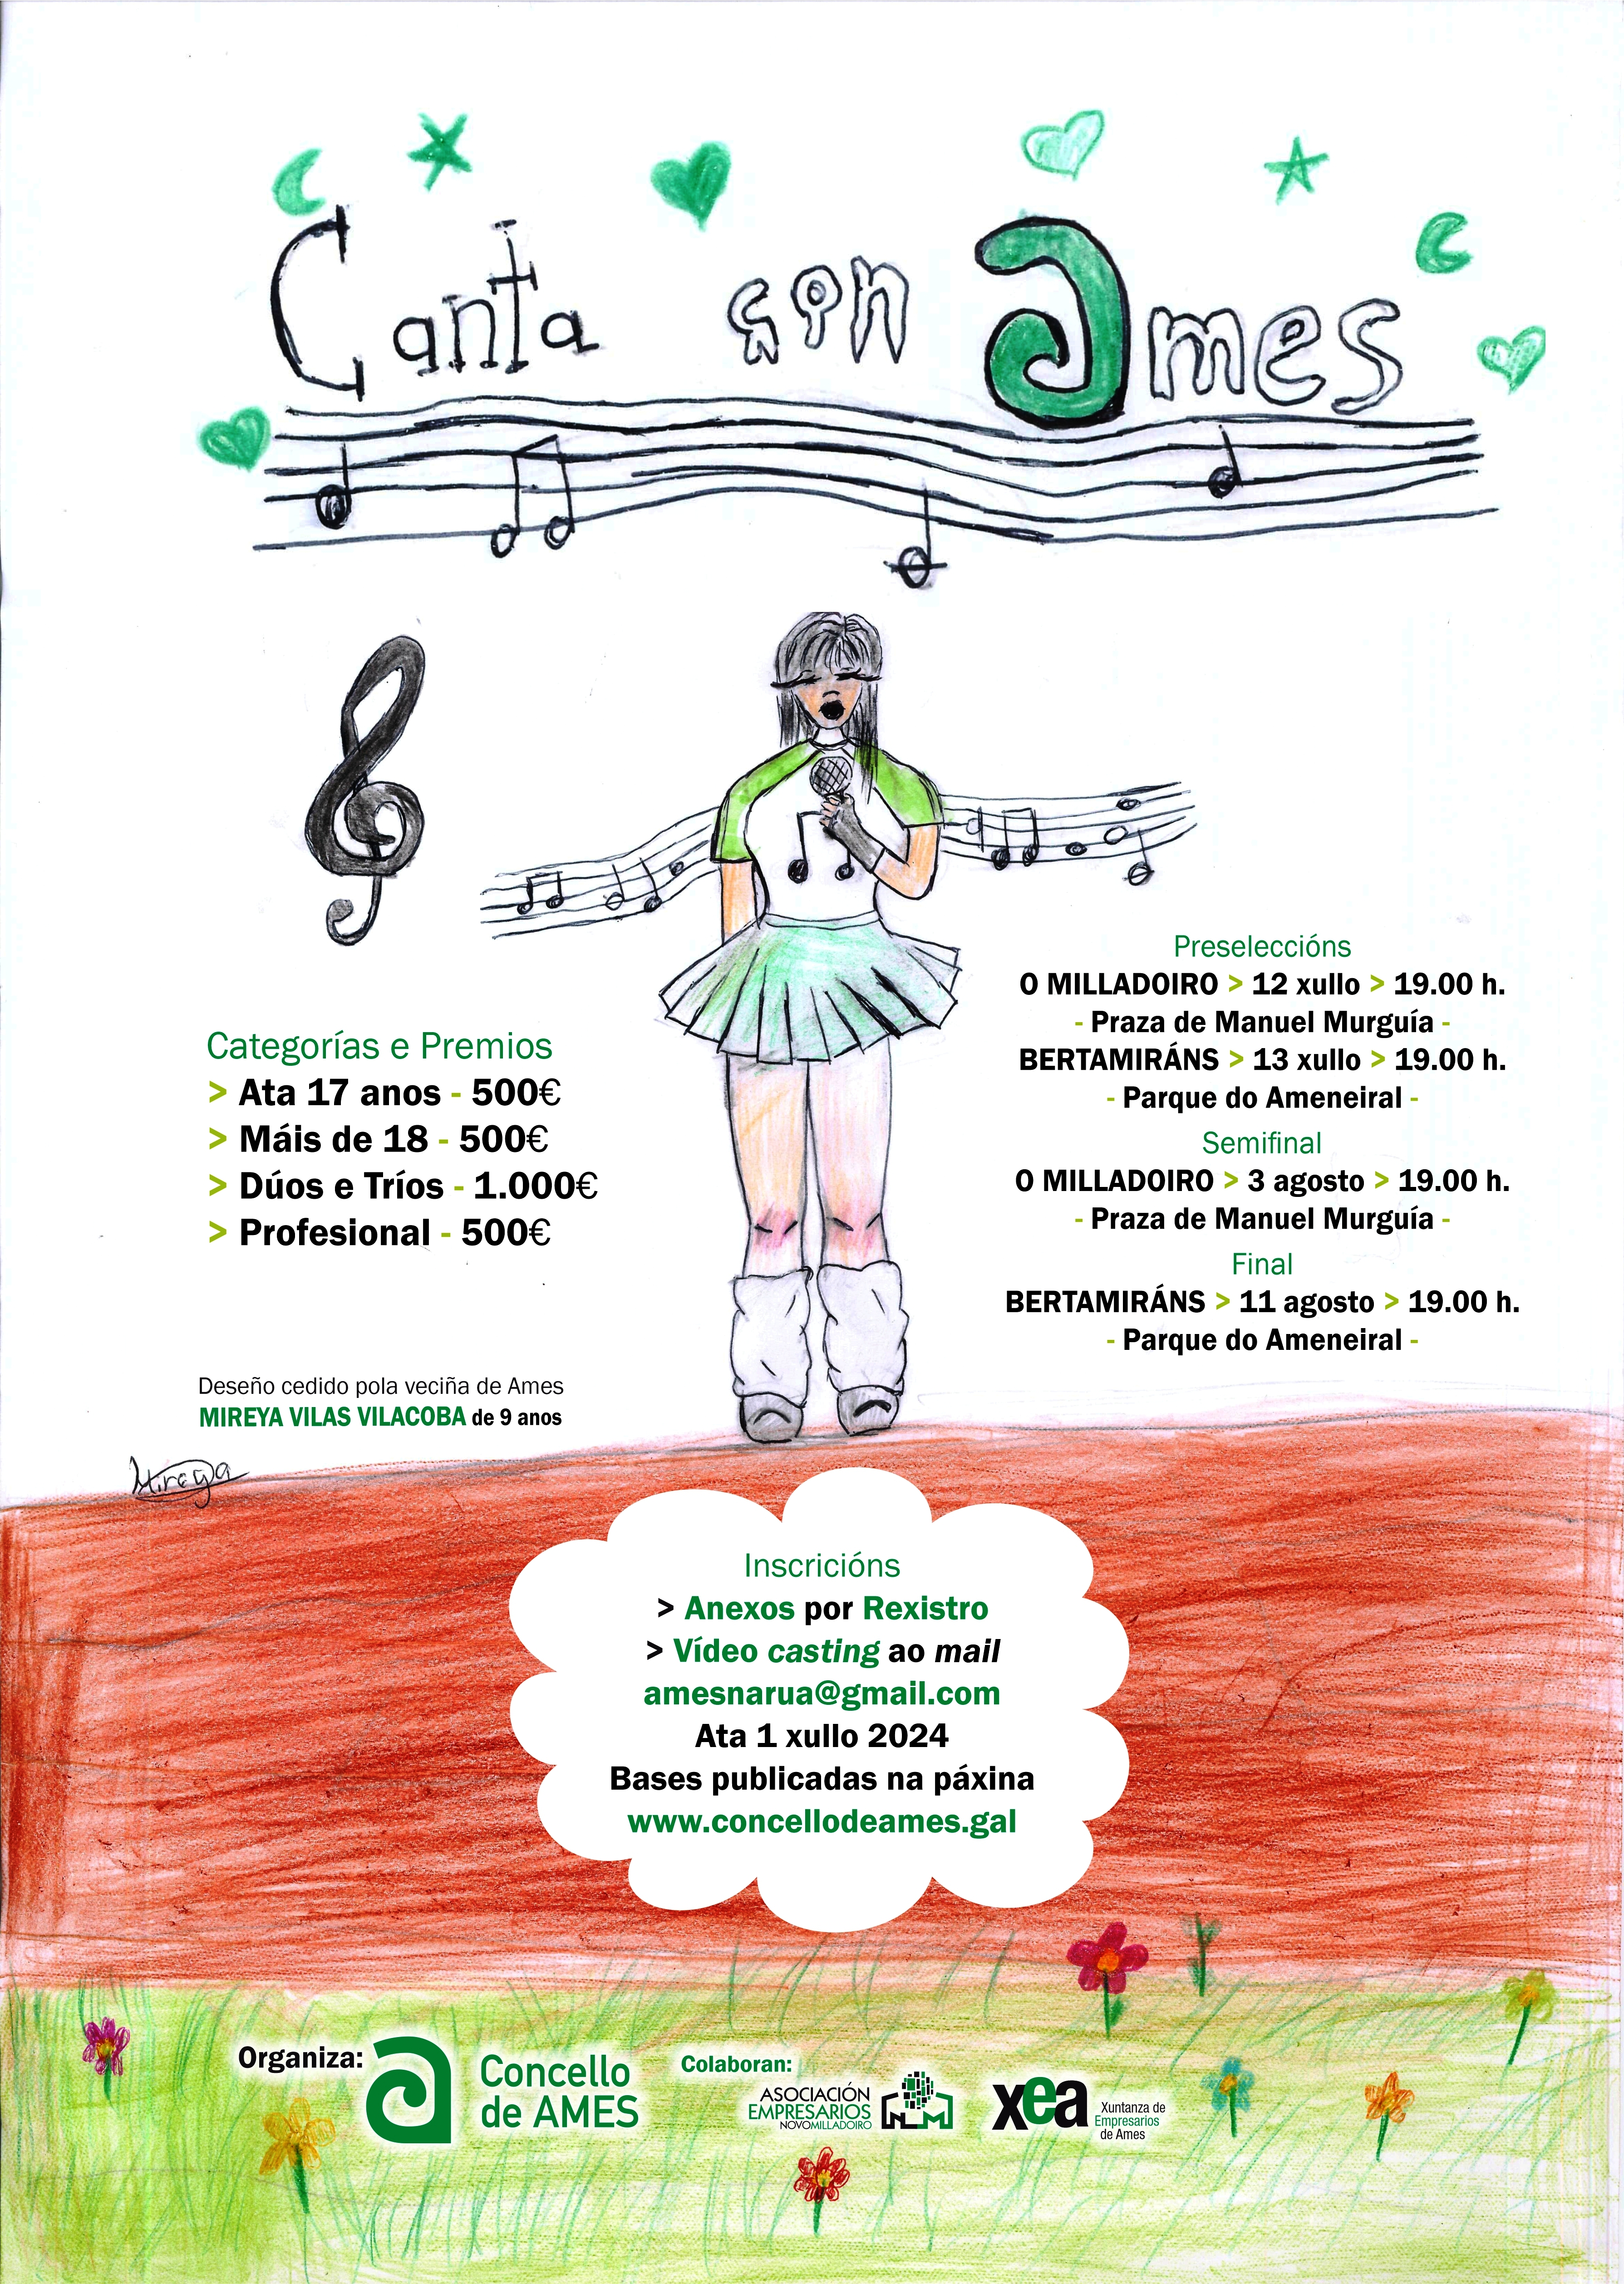 Canta con Ames
Categorías e Premios
> Ata 17 anos - 500€
> Máis de 18 - 500€
> Dúos e Tríos - 1.000€
> Profesional - 500€
Preseleccións
O MILLADOIRO > 12 xullo > 19.00 h.
- Praza de Manuel Murguía -
BERTAMIRÁNS > 13 xullo > 19.00 h.
- Parque do Ameneiral -
Semifinal
O MILLADOIRO > 3 agosto > 19.00 h.
- Praza de Manuel Murguía -
Final
BERTAMIRÁNS > 11 agosto > 19.00 h.
- Parque do Ameneiral -
Deseño cedido pola veciña de Ames
MIREYA VILAS VILACOBA de 9 anos
Mireya
Inscricións
> Anexos por Rexistro
> Vídeo casting ao mail
amesnarua@gmail.com
Ata 1 xullo 2024
Bases publicadas na páxina
www.concellodeames.gal
Organiza:
Concello
de AMES
Colaboran:
ASOCIACIÓN
EMPRESARIOS
NOVOMILLADOIRO
NM
xea
Xuntanza de
Empresarios
de Ames